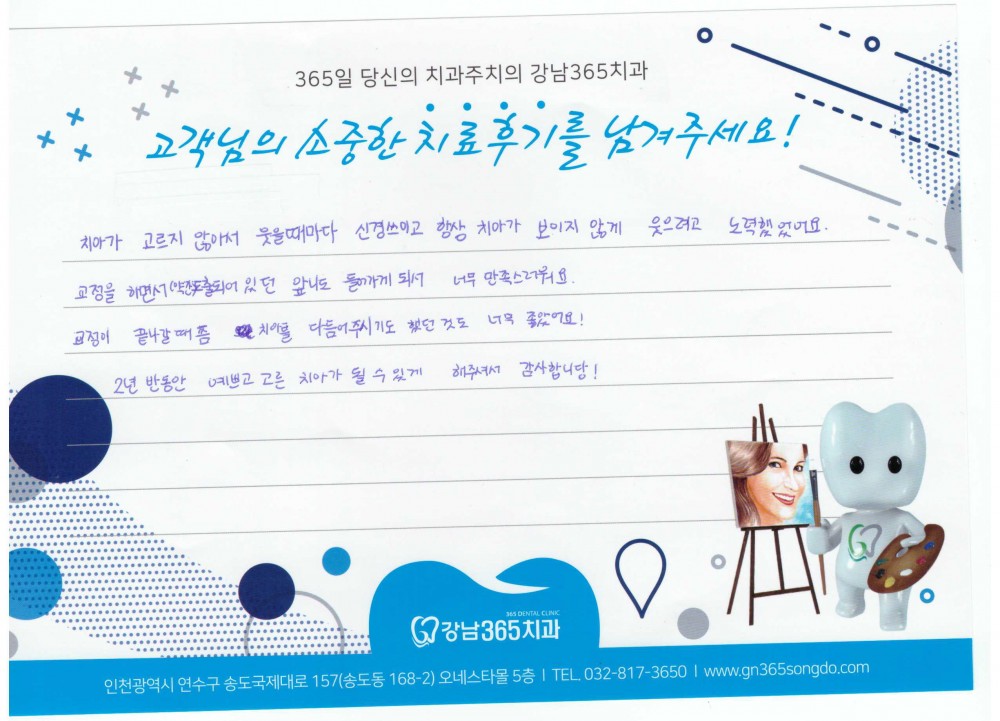 365일 당신의 치과주치의 강남365치과
고객님의 소중한 치료후기를 남겨주세요!
치아가 고르지 않아서 웃을때마다 신경쓰이고 항상 치아가 보이지 않게 웃으려고 노력했었어요.
교정을 하면서 돌출되어 있던 앞니도 들어가게 되서 너무 만족스러워요.
교정이 끝나갈 때 쯤 치아를 다듬어주시기도 했던 것도 너무 좋았어요!
2년 반동안 예쁘고 고른 치아가 될 수 있게 해주셔서 감사합니당!
365 DENTAL CLINIC
강남365치과
인천광역시 연수구 송도국제대로 157(송도동 168-2) 오네스타몰 5층 | TEL. 032-817-3650 | www.gn365songdo.com